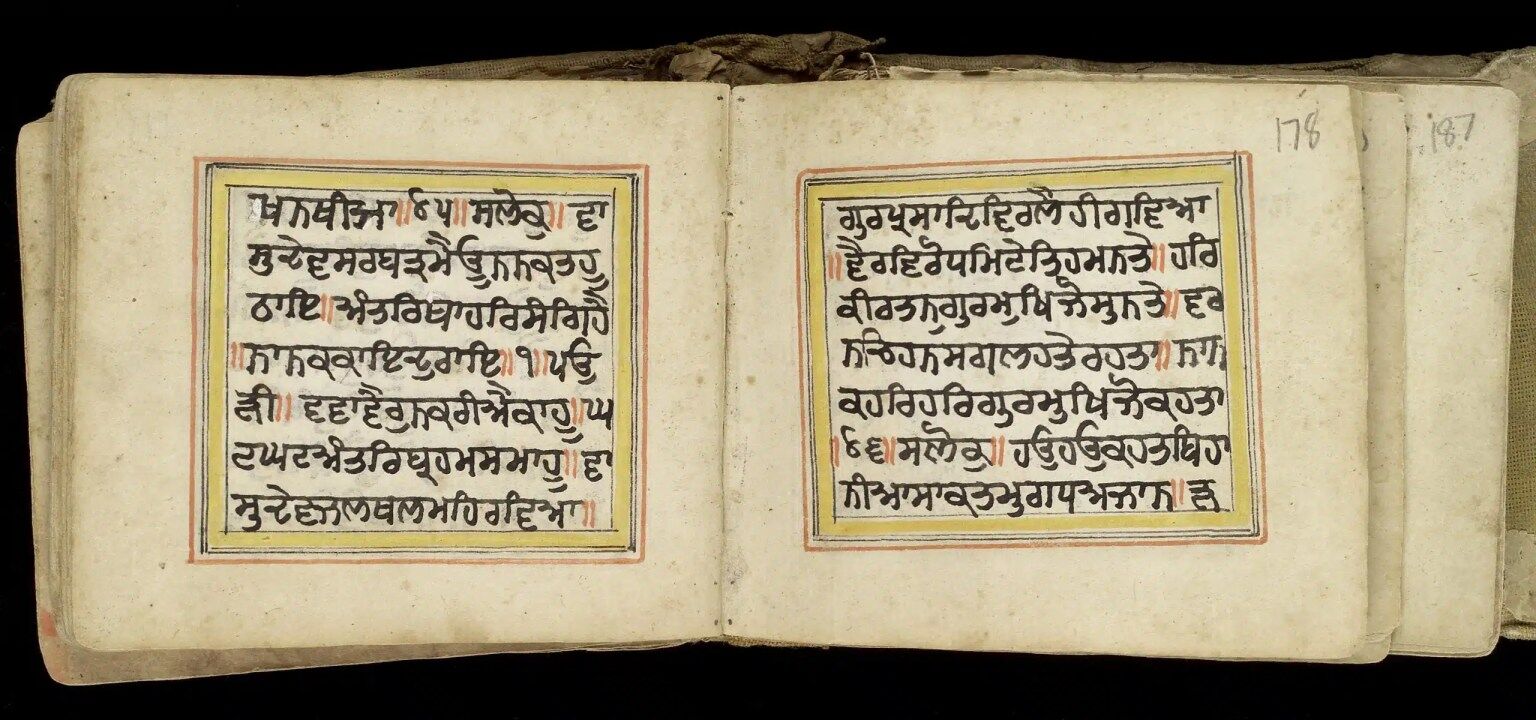 ਖਨਥੀਆ॥੪੫॥ਸਲੋਕੁ॥ ਵਾ
ਸੁਦੇਵਸਰਬਤ੍ਰਮੈਊਨਨਕਤਹੂ
ਠਾਇ॥ਅੰਤਰਿਬਾਹਰਿਸੰਗਿਹੈ
॥ਨਾਨਕਕਾਇਦੁਰਾਇ॥੧॥ਪਉ
ੜੀ॥ ਵਵਾਵੈਰੁਨਕਰੀਐਕਾਹੂ॥ਘ
ਟਘਟਅੰਤਰਿਬ੍ਰਹਮਸਮਾਹੂ॥ਵਾ
ਸੁਦੇਵਜਲਥਲਮਹਿਰਵਿਆ॥
ਗੁਰਪ੍ਰਸਾਦਿਵਿਰਲੈਹੀਗਵਿਆ
॥ਵੈਰਵਿਰੋਧਮਿਟੇਤਿਹਮਨਤੇ॥ਹਰਿ
ਕੀਰਤਨੁਗੁਰਮੁਖਿਜੋਸੁਨਤੇ॥ਵਰ
ਨਚਿਹਨਸਗਲਹਤੇਰਹਤਾ॥ਨਾਨ
ਕਹਰਿਹਰਿਗੁਰਮੁਖਿਜੋਕਹਤਾ
॥੪੬॥ਸਲੋਕੁ॥ ਹਉਹਉਕਹਤਬਿਹਾ
ਨੀਆਸਾਕਤਮੁਗਧਅਜਾਨ॥ੜ
178
187